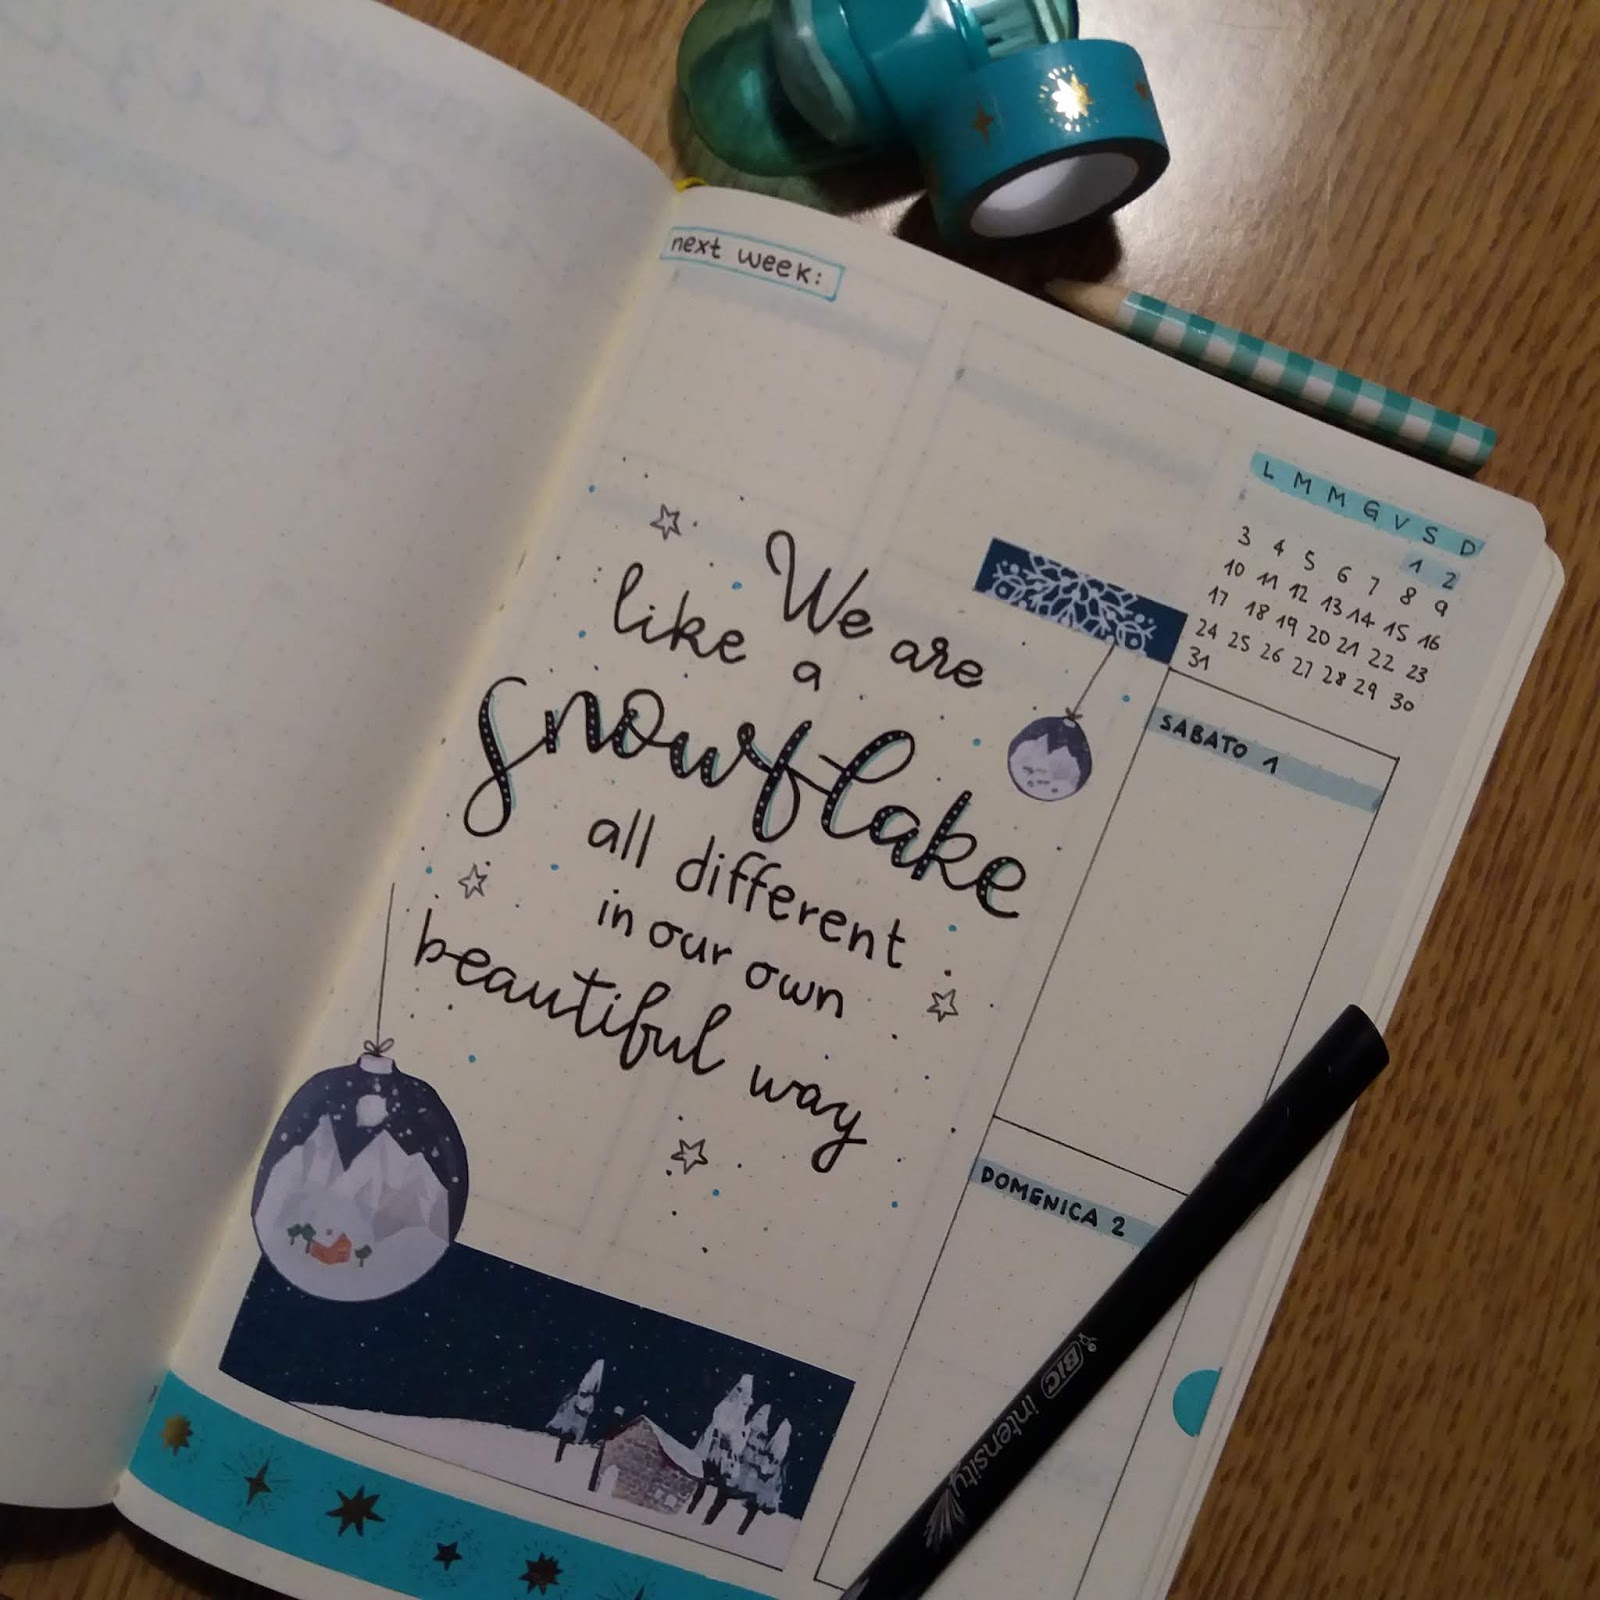 next week:
We are
like a
snowflake
all different
in our own
beautiful way
L M M G V S D
1 2
3 4 5 6 7 8 9
10 11 12 13 14 15 16
17 18 19 20 21 22 23
24 25 26 27 28 29 30
31
SABATO 1
DOMENICA 2
BIC intensity